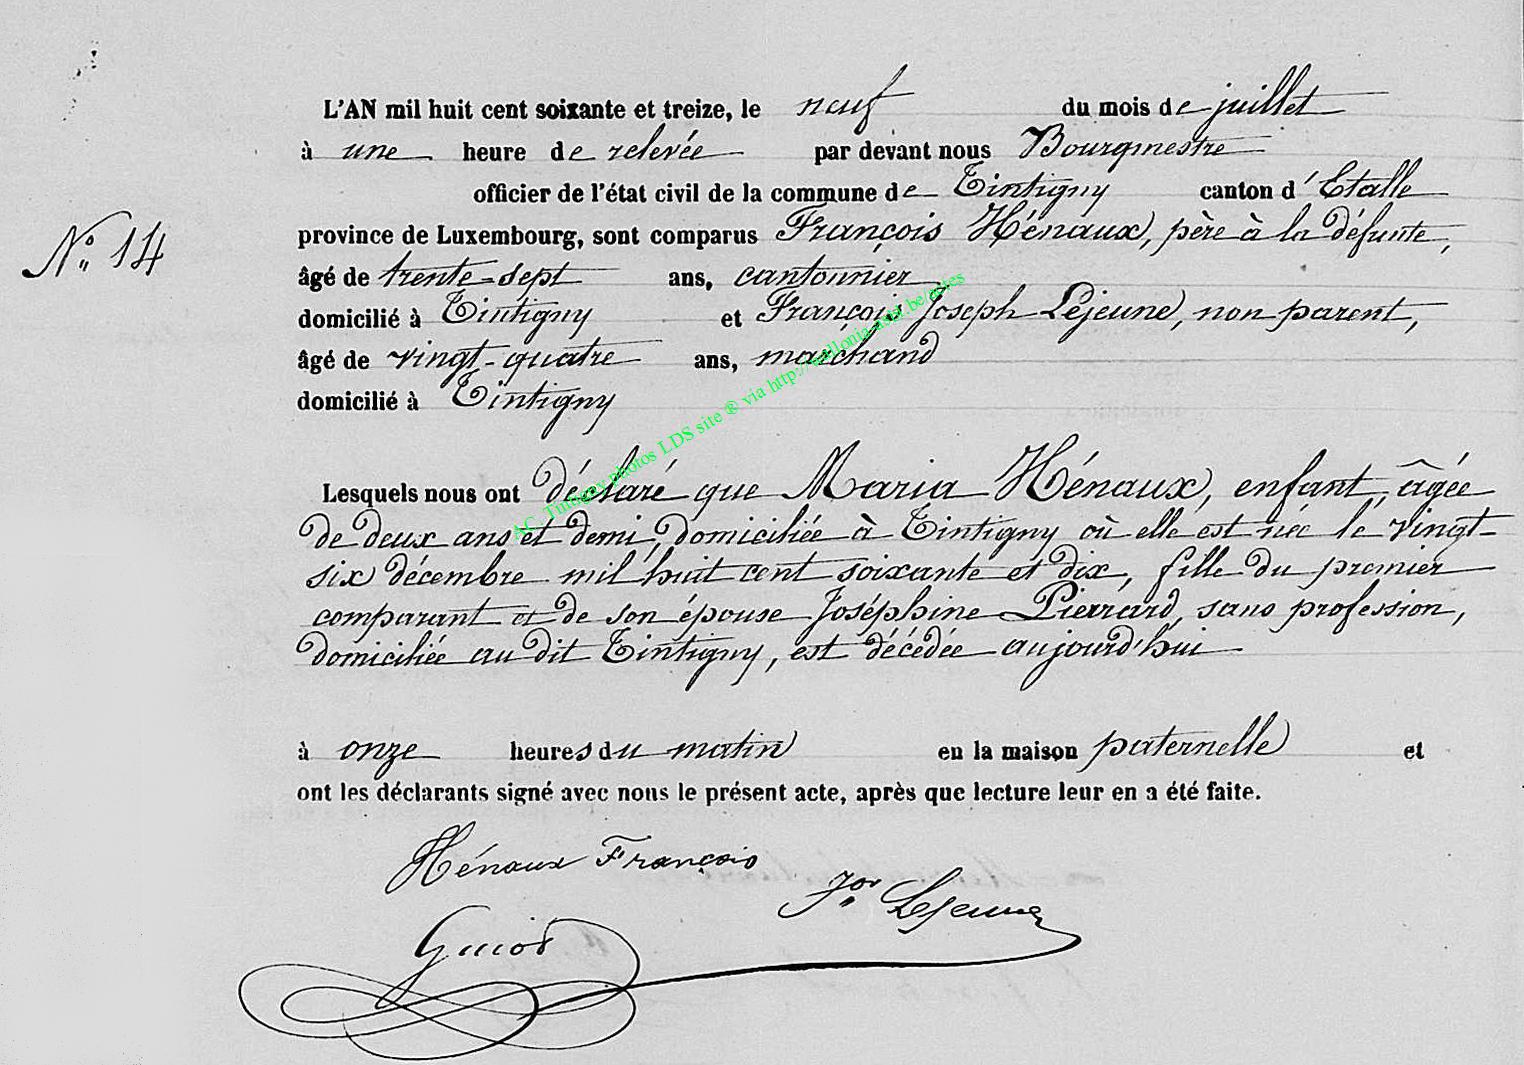 L'AN mil huit cent soixante et treize, le neuf du mois de juillet
à une heure de relevée par devant nous Bourgmestre
officier de l'état civil de la commune de Tintigny canton d'Etalle
N° 14
province de Luxembourg, sont comparus François Hénaux, père à la défunte,
âgé de trente-sept ans, cantonnier
domicilié à Tintigny et François Joseph Lejeune, non parent,
âgé de vingt-quatre ans, marchand
domicilié à Tintigny
AC Tintigny photos LDS site ® via http://wallonia-asbl.be/actes
Lesquels nous ont déclaré que Maria Hénaux, enfant, âgée
de deux ans et demi, domiciliée à Tintigny où elle est née le vingt-
six décembre mil huit cent soixante et dix, fille du premier
comparant et de son épouse Joséphine Pierrard, sans profession,
domiciliée au dit Tintigny, est décédée aujourd'hui
à onze heures du matin en la maison paternelle et
ont les déclarants signé avec nous le présent acte, après que lecture leur en a été faite.
Hénaux François
Lejeune
Guiot